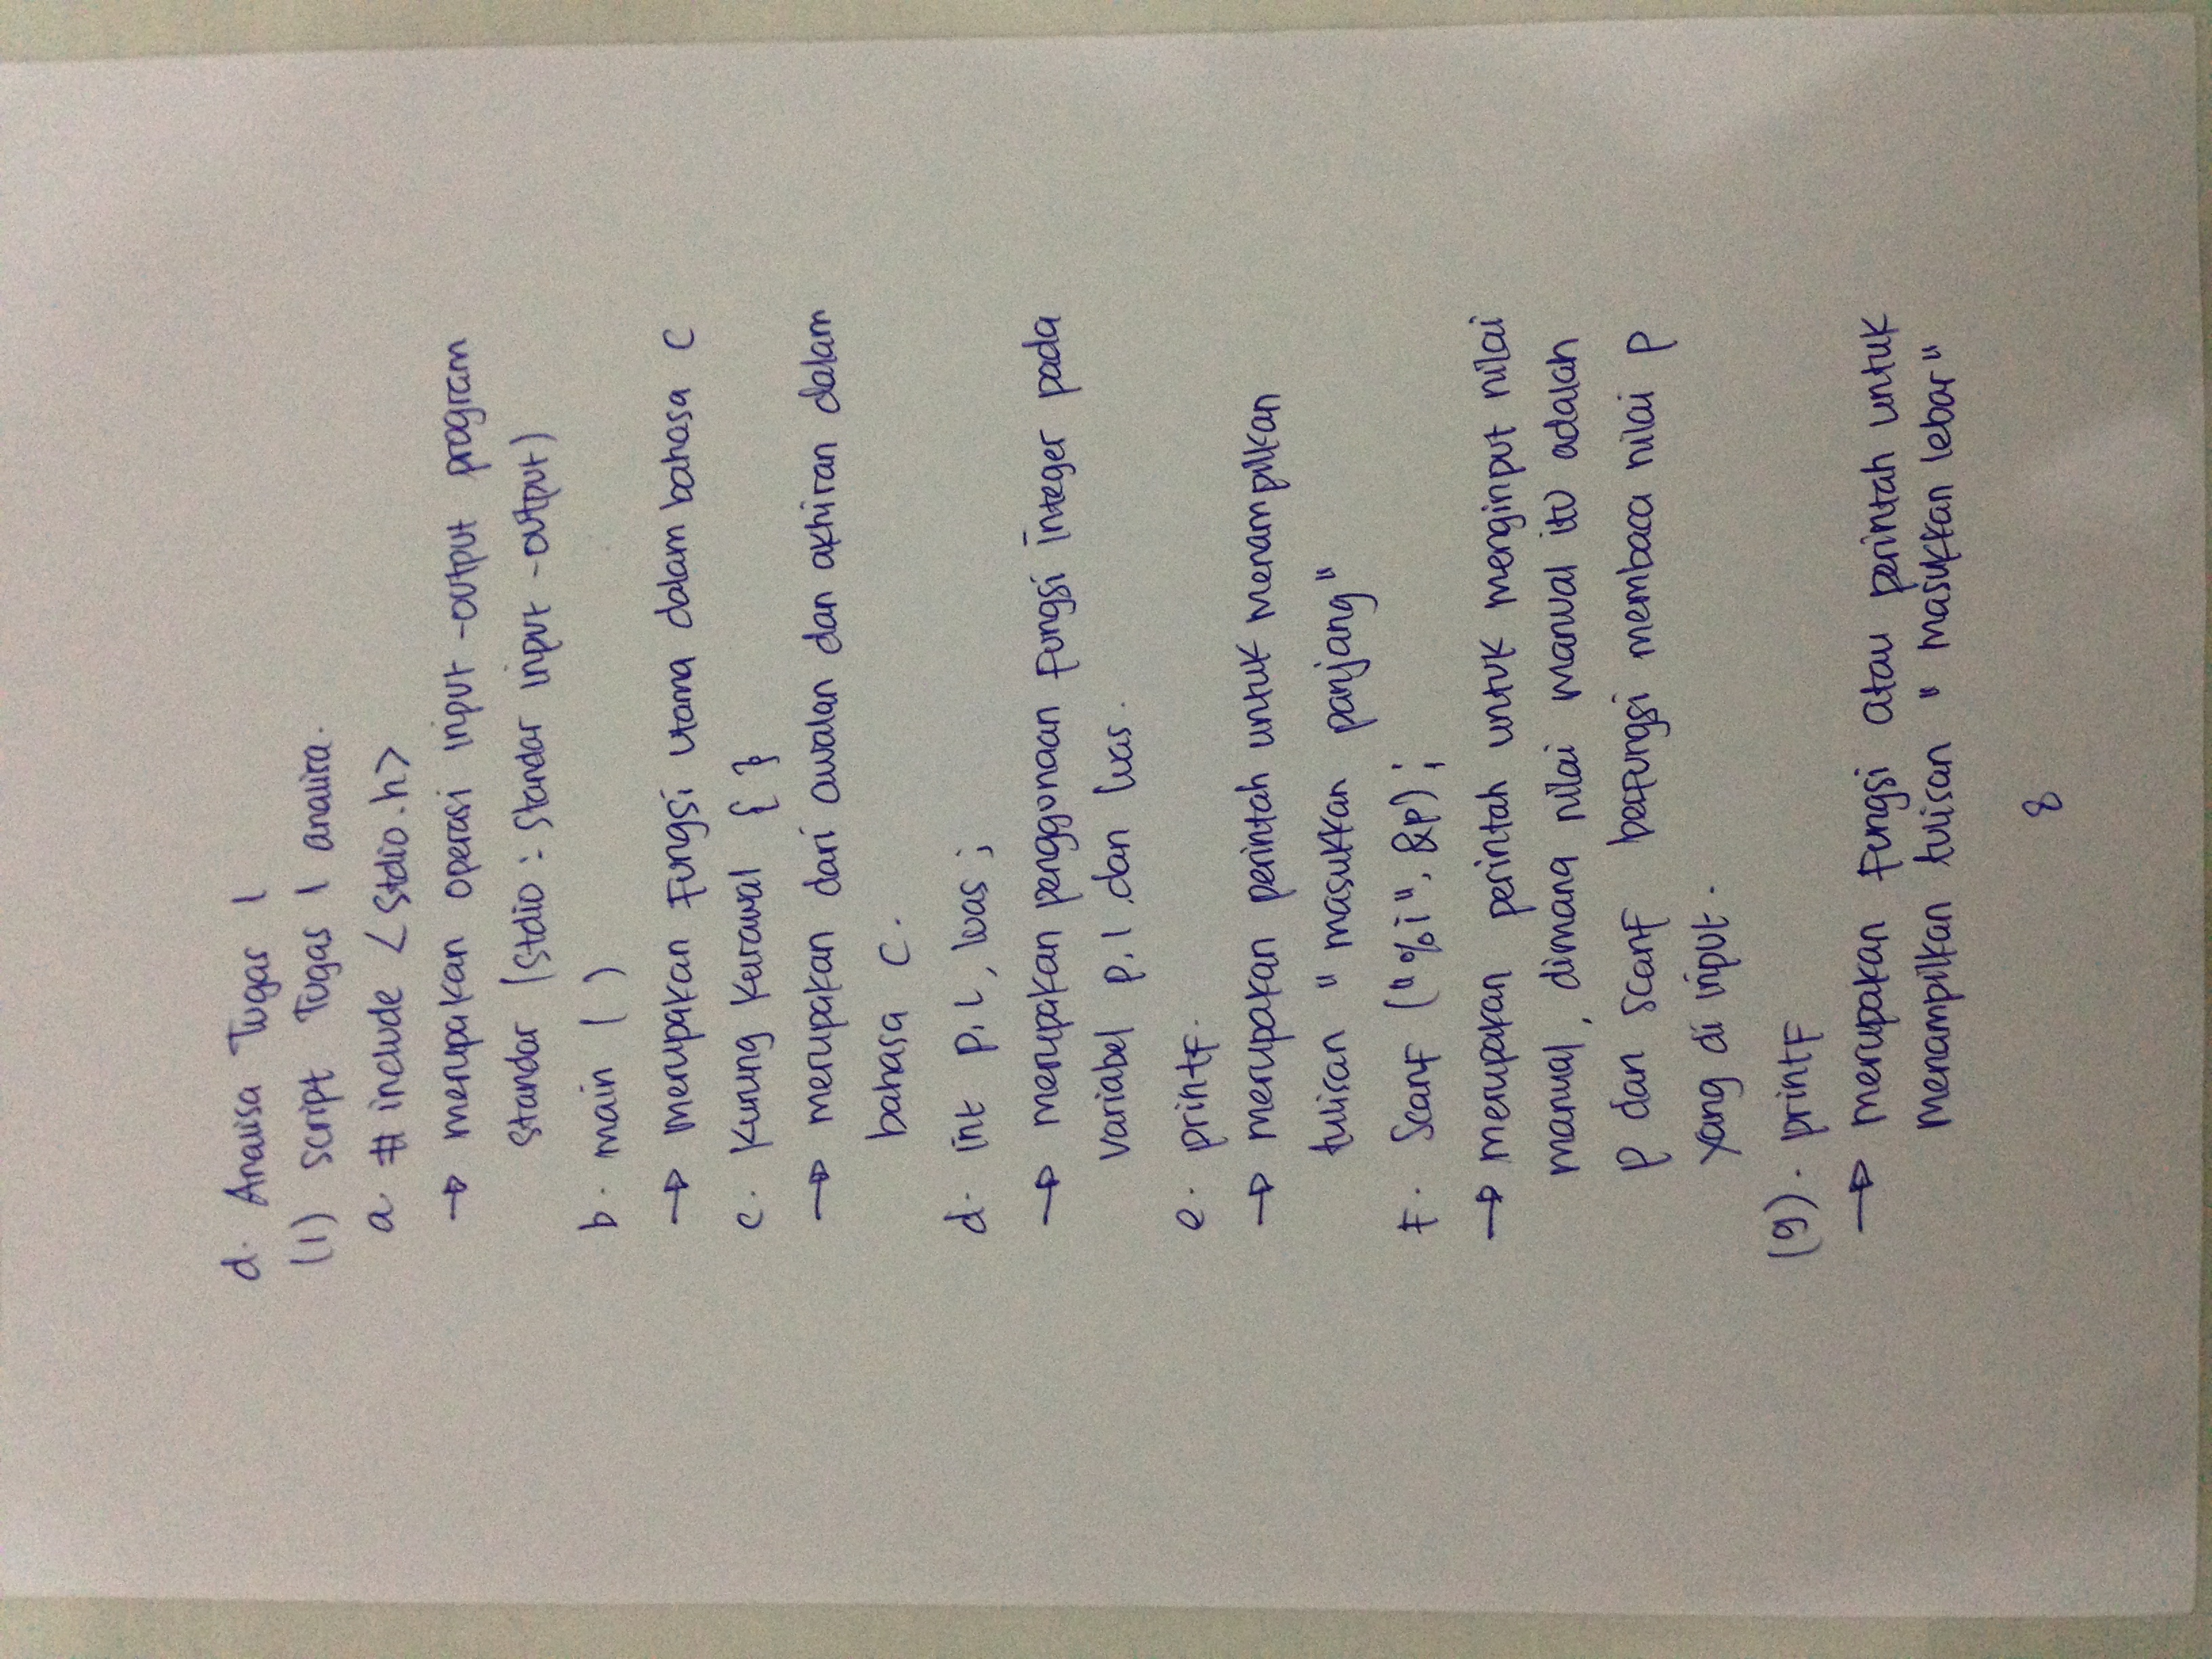 d. Analisa Tugas 1
(1) script Tugas 1 analisa.
a. # include <stdio.h>
→ merupakan operasi input -output program
standar (stdio : standar input -output)
b. main ( )
→ merupakan fungsi utama dalam bahasa C
c. Kurung Kurawal { }
→ merupakan dari awalan dan akhiran dalam
bahasa C.
d. int p, l, luas ;
→ merupakan penggunaan fungsi integer pada
variabel p, l, dan luas.
e. printf.
→ merupakan perintah untuk menampilkan
tulisan "masukkan panjang"
f. Scanf ("%i", &p) ;
→ merupakan perintah untuk menginput nilai
manual, dimana nilai manual itu adalah
p dan scanf berfungsi membaca nilai p
yang di input.
(g). printf
→ merupakan fungsi atau perintah untuk
menampilkan tulisan "masukkan lebar"
8